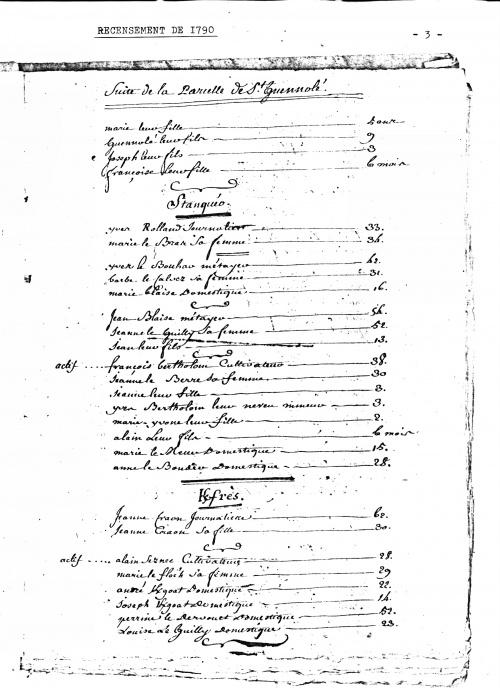 RECENSEMENT DE 1790
- 3 -
Suite de la Parcelle de St Guennolé.
marie leur fille 5 ans
Guennolé leur fils 9
Joseph leur fils 3
françoise leur fille 6 mois
Stanquio.
yves Rolland Journalier 33.
marie le Braz Sa femme 36.
yves le Bouhav métayer 42.
barbe le Salvez sa femme 31.
marie blaise Domestique 16.
Jean Blaise métayer 56.
Jeanne le Guilly Sa femme 52.
Jean leur fils 13.
actif ..... françois bertholom Cultivateur 38.
Jeanne le Berre Sa femme 30
Jeanne leur fille 8.
yves Bertholom leur neveu mineur 3.
marie-yvone leur fille 2.
alain leur fils 6 mois
marie le Domestique 15.
anne le Domestique 28.
Kfrès.
Jeanne craon Journaliere 62.
Jeanne Craon Sa fille 30.
actif ..... alain Seznec Cultivateur 28.
marie le floch Sa femme 29
andré Kgoat Domestique 22.
Joseph Kgoat Domestique 14.
perrine le Dervouet Domestique 52.
Louise Le Guilly Domestique 23.